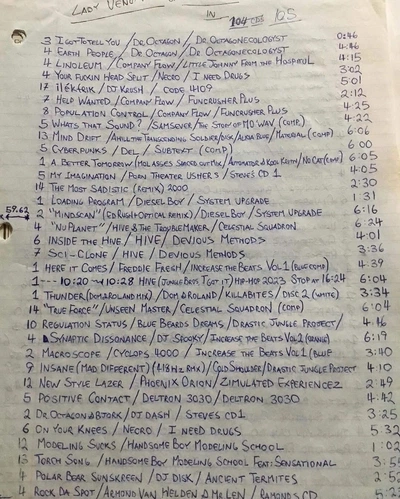 LADY VENO
IN 104 105
3 I GOT TO TELL YOU / DR. OCTAGON / DR. OCTAGONECOLOGYST 0:46
4 EARTH PEOPLE / DR. OCTAGON / DR. OCTAGONECOLOGYST 4:46
4 LINOLEUM / COMPANY FLOW / LITTLE JOHNNY FROM THE HOSPITUL 4:15
4 YOUR FUCKIN HEAD SPLIT / NECRO / I NEED DRUGS 3:02
17 /DJ KRUSH / CODE 4109 5:01
7 HELP WANTED / COMPANY FLOW / FUNCRUSHER PLUS 2:12
8 POPULATION CONTROL / COMPANY FLOW / FUNCRUSHER PLUS 4:25
5 WHATS THAT SOUND? / SAMSEVER / THE STORY OF MO WAV (COMP.) 4:22
13 MIND DRIFT / AKIL THE TANGERDANG SOLDIER / MATERIAL (COMP) 6:06
5 CYBERPUNKS / DEL / SUBTEXT (COMP.) 6:00
1 A BETTER TOMORROW (MOLASSES SPACED OUT MIX / AUTOMATOR & KOOL KEITH / NO CAT (COMP) 6:05
5 MY IMAGINATION / PORN THEATER USHER'S / STEVES CD 1 4:05
14 THE MOST SADISTIC (REMIX) 2000 2:30
1 LOADING PROGRAM / DIESEL BOY / SYSTEM UPGRADE 1:31
59.62 2 "MINDSCAN" (ED RUSH + OPTICAL REMIX) / DIESEL BOY / SYSTEM UPGRADE 6:16
4 "NU PLANET" / HIVE & THE TROUBLEMAKER / CELESTIAL SQUADRON 6:24
6 INSIDE THE HIVE / HIVE / DEVIOUS METHODS 4:01
7 SCI-CLONE / HIVE / DEVIOUS METHODS 3:36
1 HERE IT COMES / FREDDIE FRESH / INCREASE THE BEATS VOL 1 (BLUE COMP) 4:39
1 --- 10:20 → 10:28 HIVE (JUNGLE BROS. I GOT IT) HIP-HOP 2023 STOP AT 16:24 6:04
1 THUNDER (DOM & ROLAND MIX) / DOM & ROLAND / KILLABITES / DISC 2 (WHITE) 3:34
14 "TRUE FORCE" / UNSEEN MASTER / CELESTIAL SQUADRON (COMP) 6:04
10 REGULATION STATUS / BLUE BEARDS DREAMS / DRASTIC JUNGLE PROJECT / 4:46
4 SYNAPTIC DISSONANCE / DJ. SPOOKY / INCREASE THE BEATS VOL 2 (ORANGE) 6:19
2 MACROSCOPE / CYCLOPS 4000 / INCREASE THE BEATS VOL 1 (BLUE 3:40
9 INSANE (MAD DIFFERENT) (RMX) / COLD SHOULDER / DRASTIC JUNGLE PROJECT 4:10
12 NEW STYLE LAZER / PHOENIX ORION / ZIMULATED EXPERIENCEZ 2:49
5 POSITIVE CONTACT / DELTRON 3030 / DELTRON 3030 4:42
2 DR. OCTAGON & BJORK / DJ DASH / STEVES CD1 3:25
6 ON YOUR KNEES / NECRO / I NEED DRUGS 5:32
12 MODELING SUCKS / HANDSOME BOY MODELING SCHOOL 1:02
13 TORCH SONG / HANDSOME BOY MODELING SCHOOL FEAT: SENSATIONAL 3:54
4 POLAR BEAR SUNSKREEN / DJ DISK / ANCIENT TERMITES 2:52
4 ROCK DA SPOT / ARMOND VAN HELDEN & MR LEN / RAMONDS CD